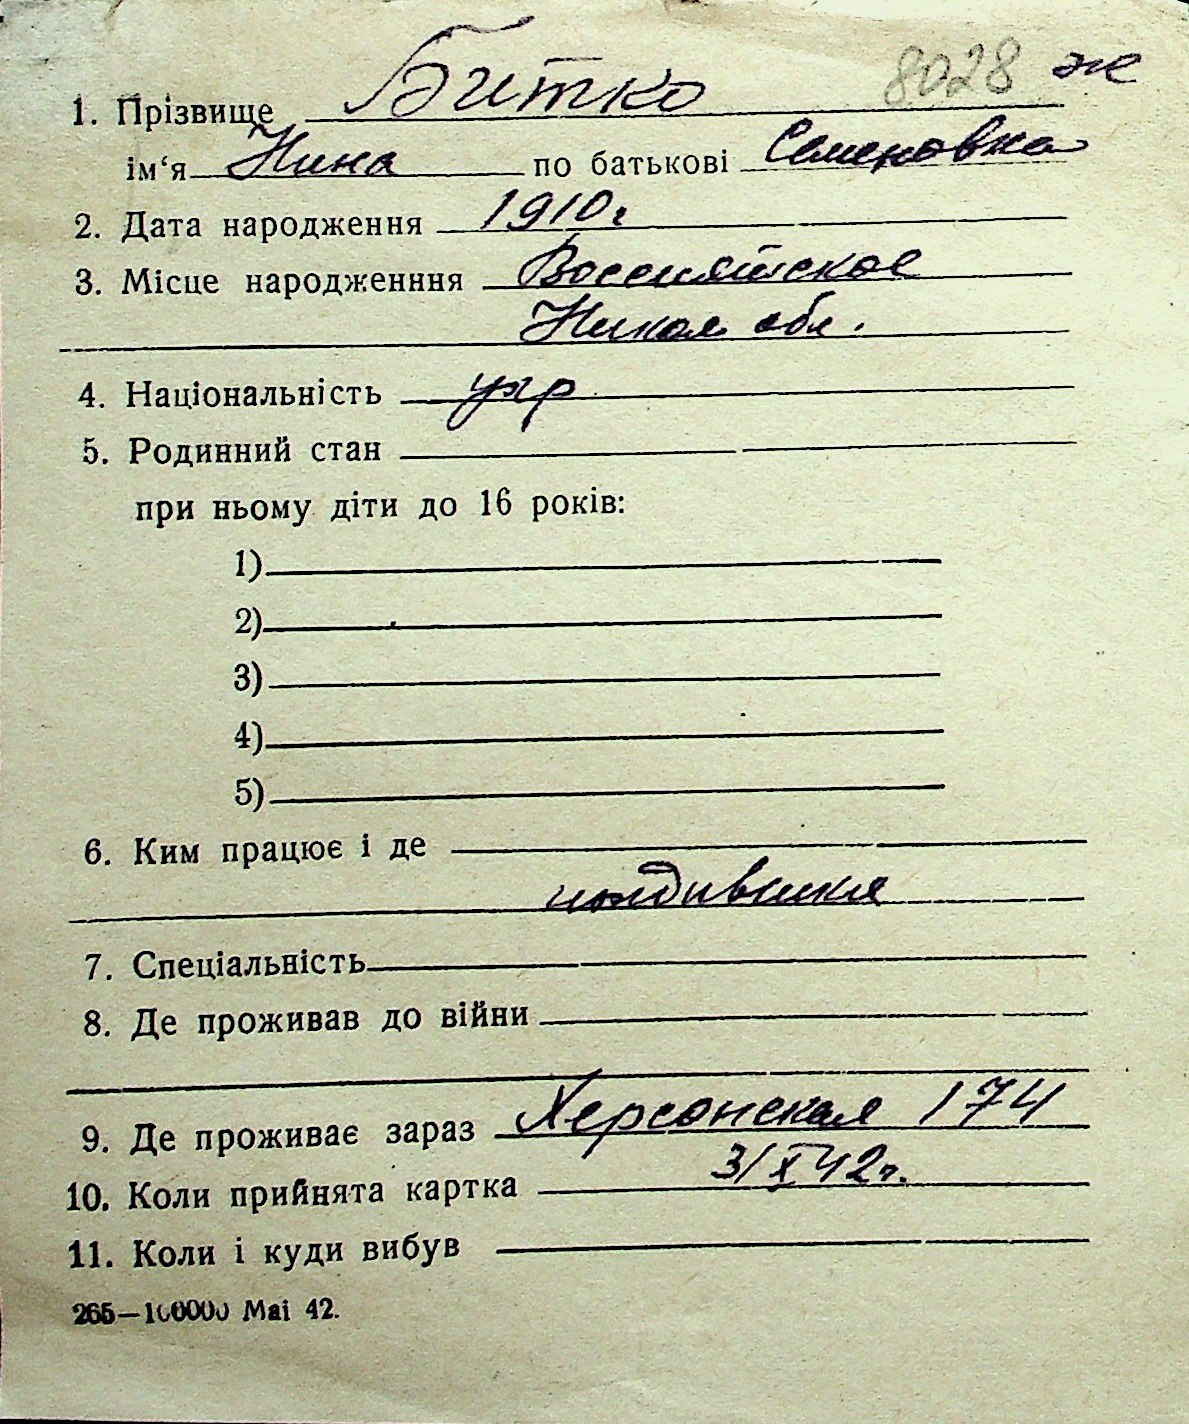 1. Прізвище Битко 8028 ж
ім‘я Нина по батькові Семеновна
2. Дата народження 1910г
3. Місце народженння
Никол обл.
4. Національність укр
5. Родинний стан
при ньому діти до 16 років:
1)
2)
3)
4)
5)
6. Ким працює і де
7. Спеціальність
8. Де проживав до війни
9. Де проживає зараз Херсонская 174
10. Коли прийнята картка 3/X 42г.
11. Коли і куди вибув
265—100000 Mai 42.